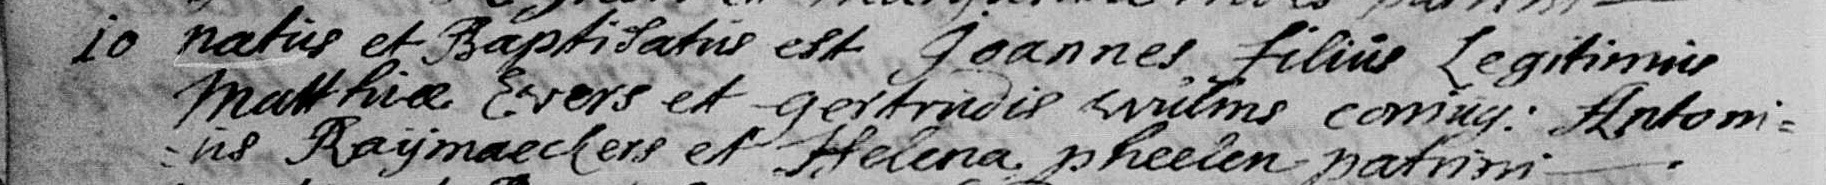 10 natus et Baptisatus est Joannes filius Legitimus
Matthiæ Evers et gertrudis wilms coniug: Antoni=
=us Raijmaeckers et Helena pheelen patrini